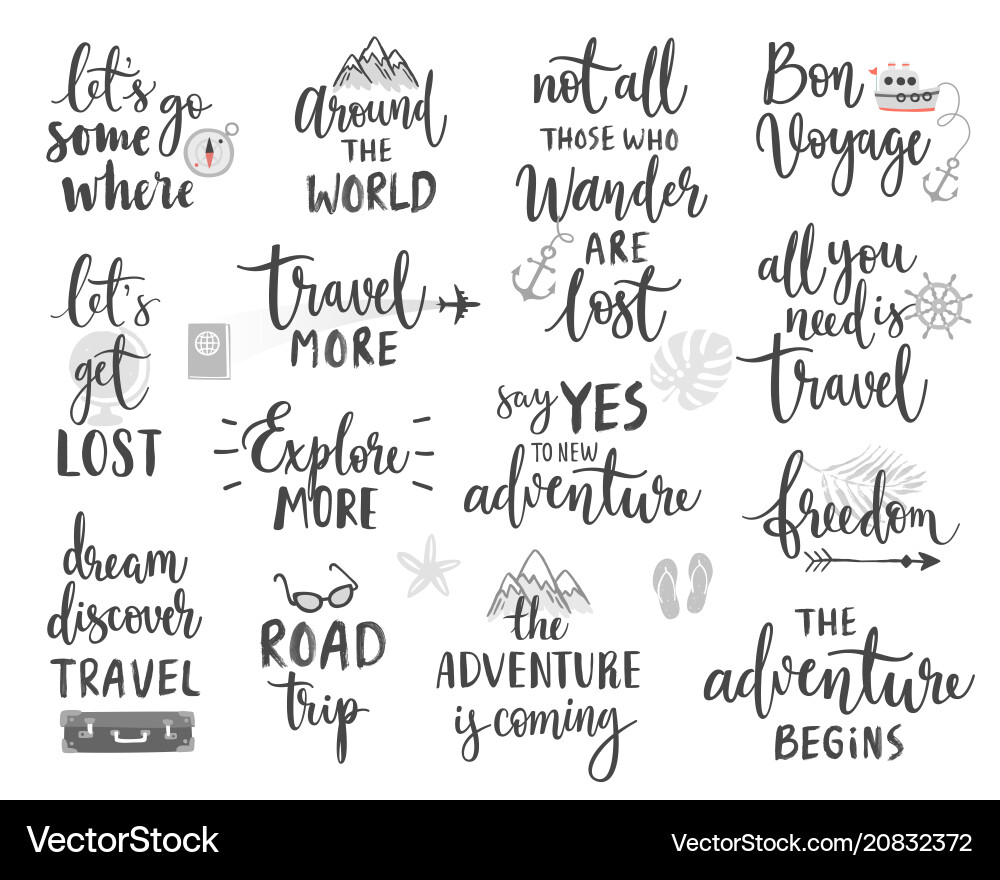 let's go
some
where
around
THE
WORLD
not all
THOSE WHO
Wander
ARE
lost
Bon
Voyage
let's
get
LOST
travel
MORE
all you
need is
travel
Explore
MORE
say YES
TO NEW
adventure
freedom
dream
discover
TRAVEL
ROAD
trip
the
ADVENTURE
is coming
THE
adventure
BEGiNS
VectorStock®
VectorStock.com/20832372